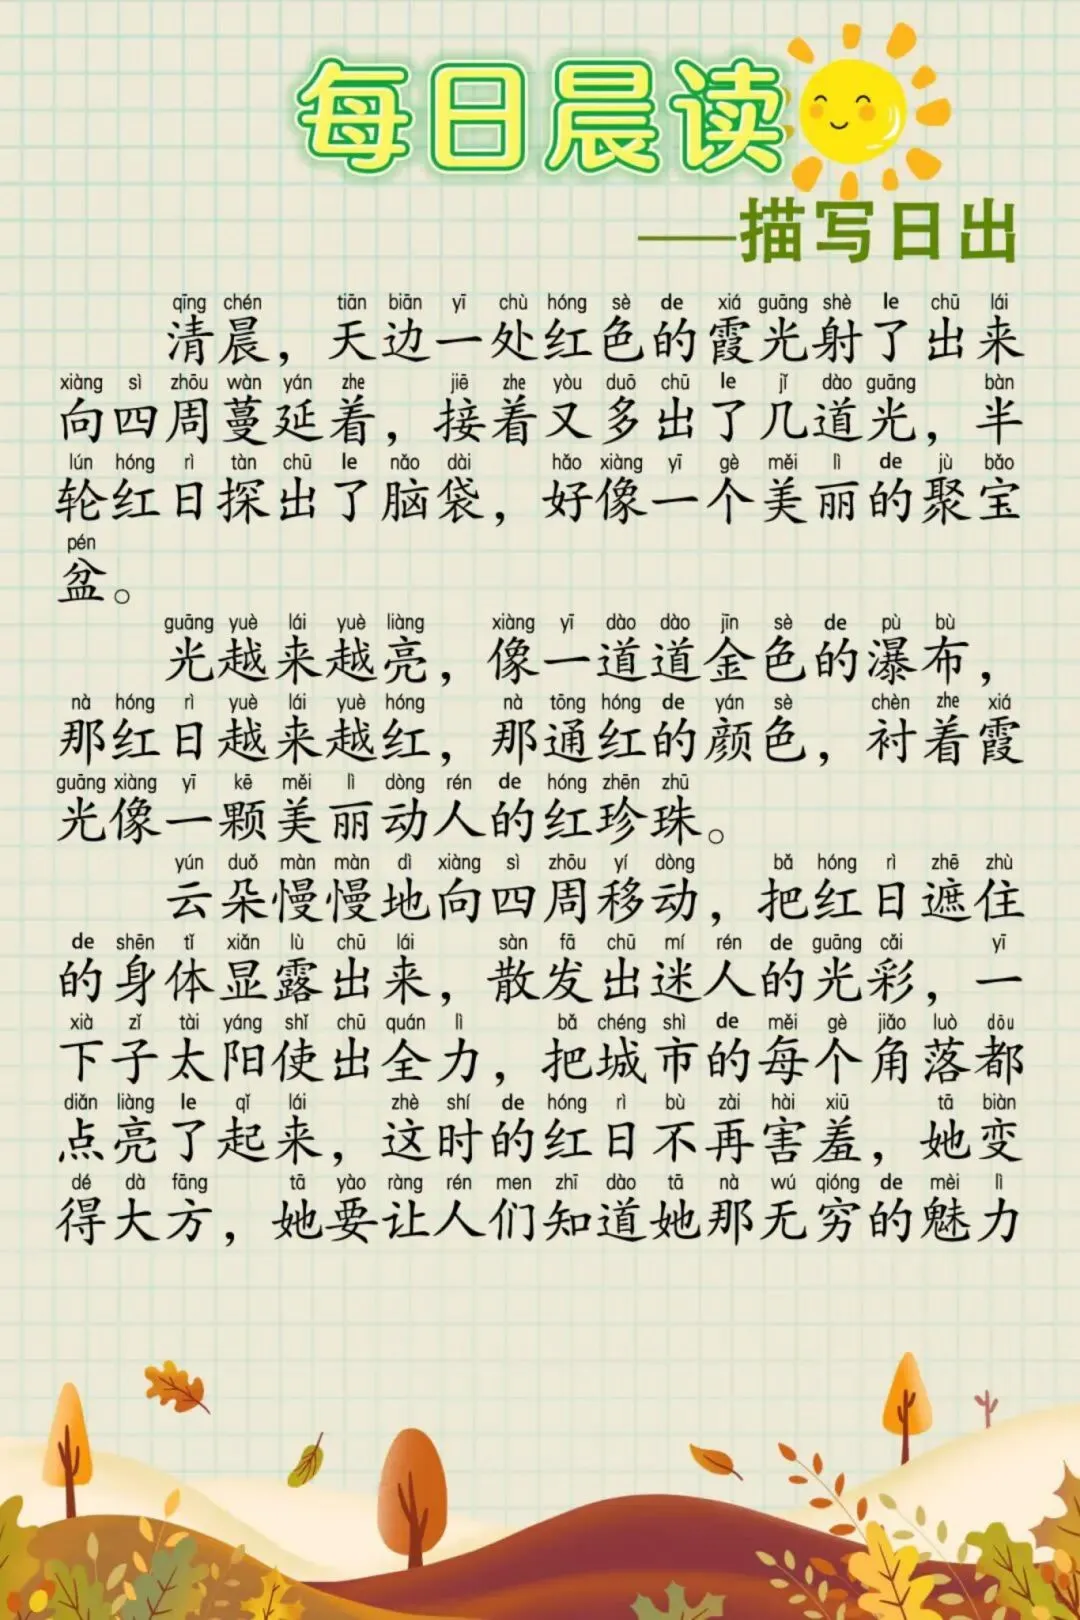 每日晨读
——描写日出
qīng chén tiān biān yī chù hóng sè de xiá guāng shè le chū lái
清晨，天边一处红色的霞光射了出来
xiàng sì zhōu wàn yán zhe jiē zhe yòu duō chū le jǐ dào guāng bàn
向四周蔓延着，接着又多出了几道光，半
lún hóng rì tàn chū le nǎo dài hǎo xiàng yī gè měi lì de jù bǎo
轮红日探出了脑袋，好像一个美丽的聚宝
pén
盆。
guāng yuè lái yuè liàng xiàng yī dào dào jīn sè de pù bù
光越来越亮，像一道道金色的瀑布，
nà hóng rì yuè lái yuè hóng nà tōng hóng de yán sè chèn zhe xiá
那红日越来越红，那通红的颜色，衬着霞
guāng xiàng yī kē měi lì dòng rén de hóng zhēn zhū
光像一颗美丽动人的红珍珠。
yún duǒ màn màn dì xiàng sì zhōu yí dòng bǎ hóng rì zhē zhù
云朵慢慢地向四周移动，把红日遮住
de shēn tǐ xiǎn lù chū lái sàn fā chū mí rén de guāng cǎi yī
的身体显露出来，散发出迷人的光彩，一
xià zǐ tài yáng shǐ chū quán lì bǎ chéng shì de měi gè jiǎo luò dōu
下子太阳使出全力，把城市的每个角落都
diǎn liàng le qǐ lái zhè shí de hóng rì bù zài hài xiū tā biàn
点亮了起来，这时的红日不再害羞，她变
dé dà fāng tā yào ràng rén men zhī dào tā nà wú qióng de mèi lì
得大方，她要让人们知道她那无穷的魅力